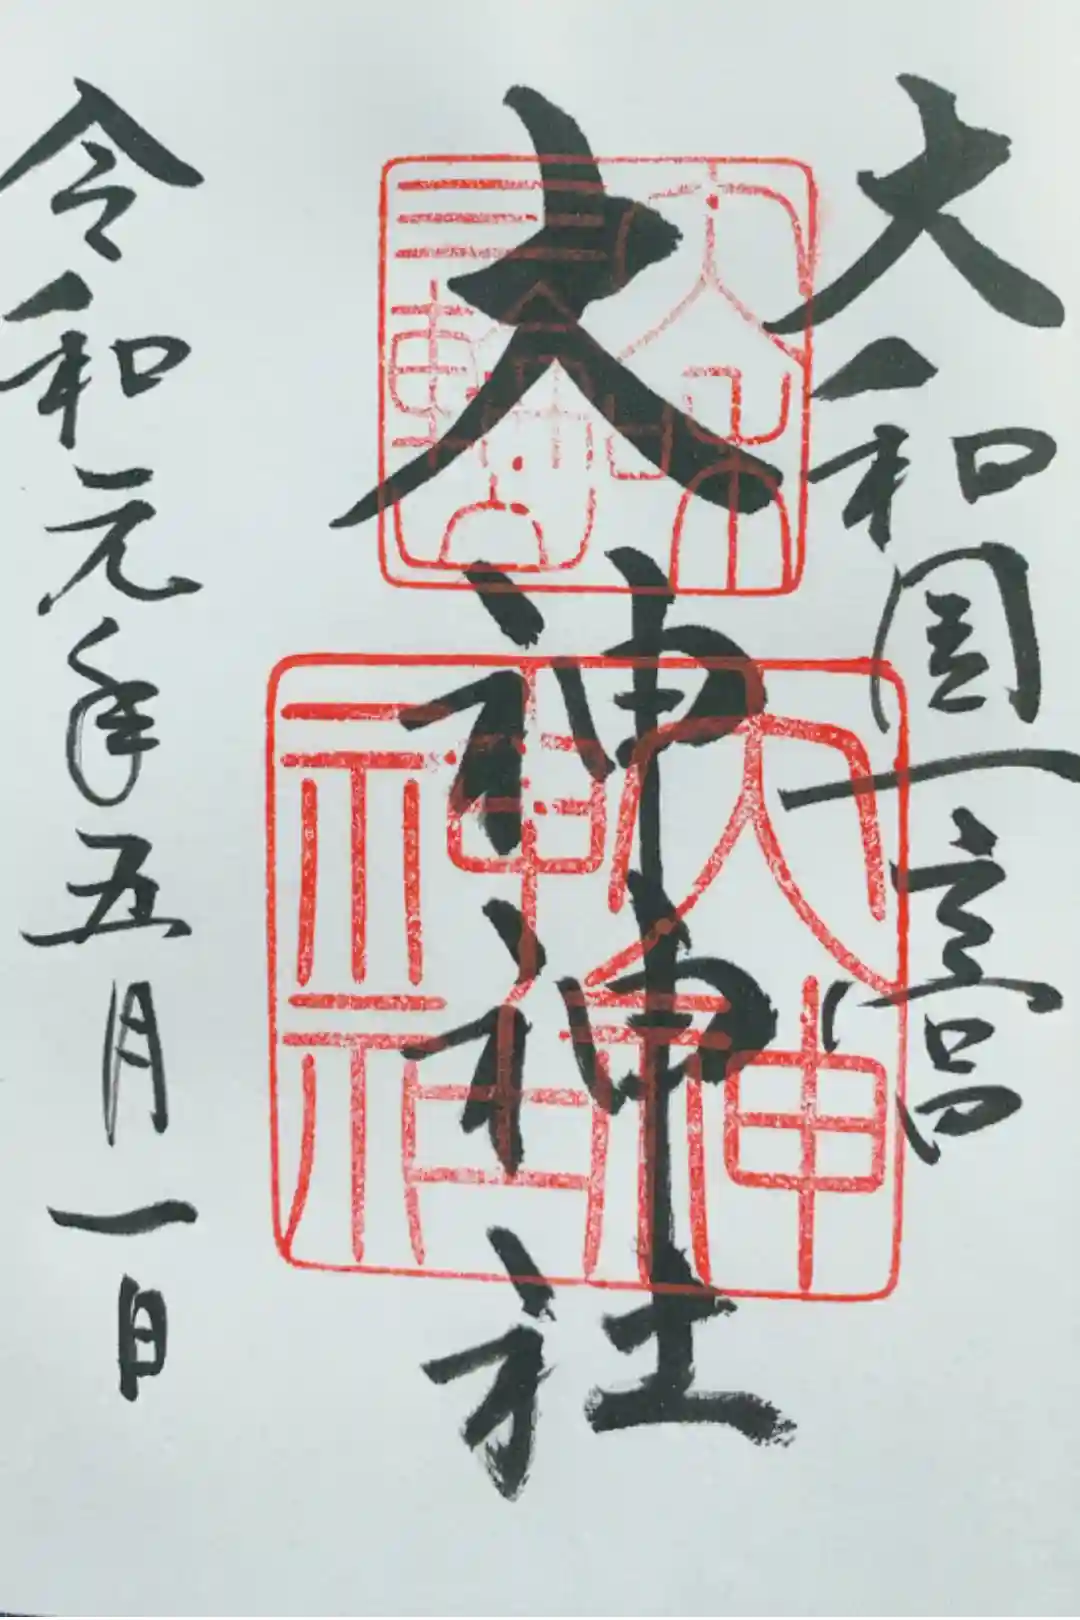 大和国一之宮
大神神社
令和元年五月一日
大神神社